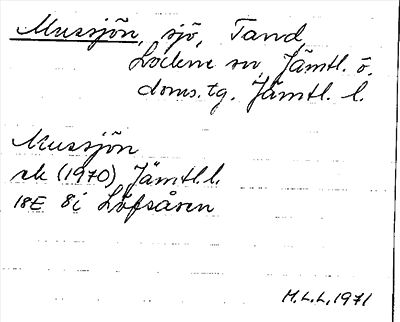 Mussjön, sjö, Tand
Lockne sn, Jämtl. ö.
doms.tg. Jämtl. l.
Mussjön
ek (1970) Jämtl.l.
18E 8i Löfsåsen
M.L.L. 1971